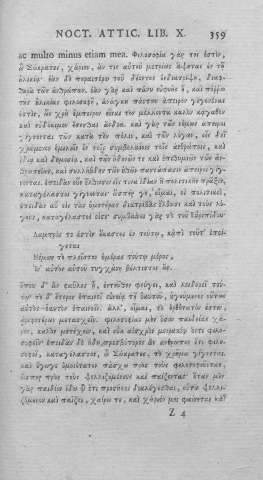 NOCT. ATTIC. LIB. X. 359
ac multo minus etiam mea. Φιλοσοφία γάρ τοί ἐστιν,
ὦ Σώκρατες, χάριεν, ἄν τις αὐτοῦ μετρίως ἅψηται ἐν τῇ
ἡλικίᾳ· ἐὰν δὲ περαιτέρω τοῦ δέοντος ἐνδιατρίψῃ, διαφ-
θορὰ τῶν ἀνθρώπων. ἐὰν γὰρ καὶ πάνυ εὐφυὴς ᾖ, καὶ πόῤῥω
τῆς ἡλικίας φιλοσοφῇ, ἀνάγκη πάντων ἄπειρον γεγονέναι
ἐστὶν, ὧν χρὴ ἔμπειρον εἶναι τὸν μέλλοντα καλὸν κἀγαθὸν
καὶ εὐδόκιμον ἔσεσθαι ἄνδρα. καὶ γὰρ τῶν νόμων ἄπειροι
γίγνονται τῶν κατὰ τὴν πόλιν, καὶ τῶν λόγων, οἷς δεῖ
χρώμενον ὁμιλεῖν ἐν τοῖς συμβολαίοις τοῖς ἀνθρώποις, καὶ
ἰδίᾳ καὶ δημοσίᾳ, καὶ τῶν ἡδονῶν τε καὶ ἐπιθυμιῶν τῶν ἀν-
θρωπείων, καὶ συλλήβδην τῶν ἠθῶν παντάπασιν ἄπειροι γίγ-
νονται. ἐπειδὰν οὖν ἔλθωσιν εἴς τινα ἰδίαν ἢ πολιτικὴν πρᾶξιν,
καταγέλαστοι γίγνονται· ὥσπερ γε, οἶμαι, οἱ πολιτικοὶ,
ἐπειδὰν αὖ εἰς τὰς ὑμετέρας διατριβὰς ἔλθωσι καὶ τοὺς λό-
γους, καταγέλαστοί εἰσιν· συμβαίνει γὰρ τὸ τοῦ Εὐριπίδου·
Λαμπρός τέ ἐστιν ἕκαστος ἐν τούτῳ, κἀπὶ τοῦτ᾽ ἐπεί-
γεται
Νέμων τὸ πλεῖστον ἡμέρας τούτῳ μέρος,
ἵν᾽ αὐτὸς αὑτοῦ τυγχάνῃ βέλτιστος ὤν.
ὅπου δ᾽ ἂν φαῦλος ᾖ, ἐντεῦθεν φεύγει, καὶ λοιδορεῖ τοῦ-
το· τὸ δ᾽ ἕτερον ἐπαινεῖ εὐνοίᾳ τῇ ἑαυτοῦ, ἡγούμενος οὕτως
αὐτὸς ἑαυτὸν ἐπαινεῖν. ἀλλ᾽, οἶμαι, τὸ ὀρθότατόν ἐστιν,
ἀμφοτέρων μετασχεῖν. φιλοσοφίας μὲν ὅσον παιδείας χά-
ριν, καλὸν μετέχειν, καὶ οὐκ αἰσχρὸν μειρακίῳ ὄντι φιλο-
σοφεῖν· ἐπειδὰν δὲ ἤδη πρεσβύτερος ὢν ἄνθρωπος ἔτι φιλο-
σοφῇ, καταγέλαστον, ὦ Σώκρατες, τὸ χρῆμα γίγνεται.
καὶ ἔγωγε ὁμοιότατον πάσχω πρὸς τοὺς φιλοσοφοῦντας,
ὥσπερ πρὸς τοὺς ψελλιζομένους καὶ παίζοντας· ὅταν μὲν
γὰρ παιδίον ἴδω ᾧ ἔτι προσήκει διαλέγεσθαι, οὕτω ψελλι-
ζόμενον καὶ παίζον, χαίρω τε, καὶ χάριέν μοι φαίνεται καὶ
Z 4